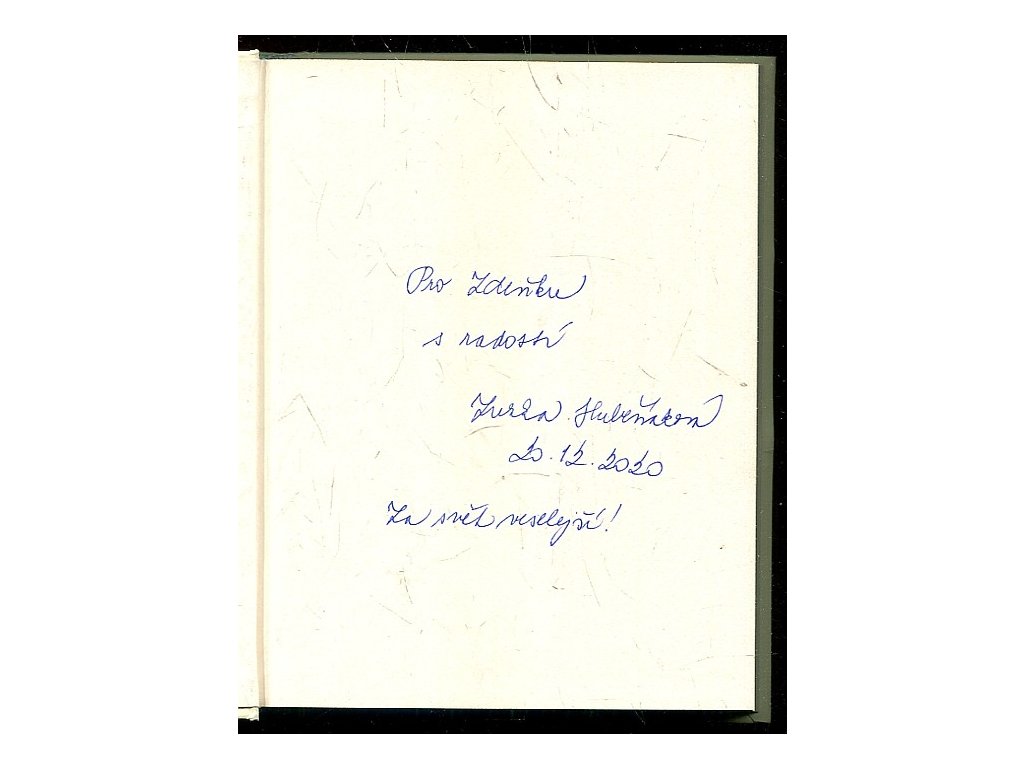 Pro Zdeňku
s radostí
Zuzka Hubeňáková
20.12.2020
Za svět veselejší!